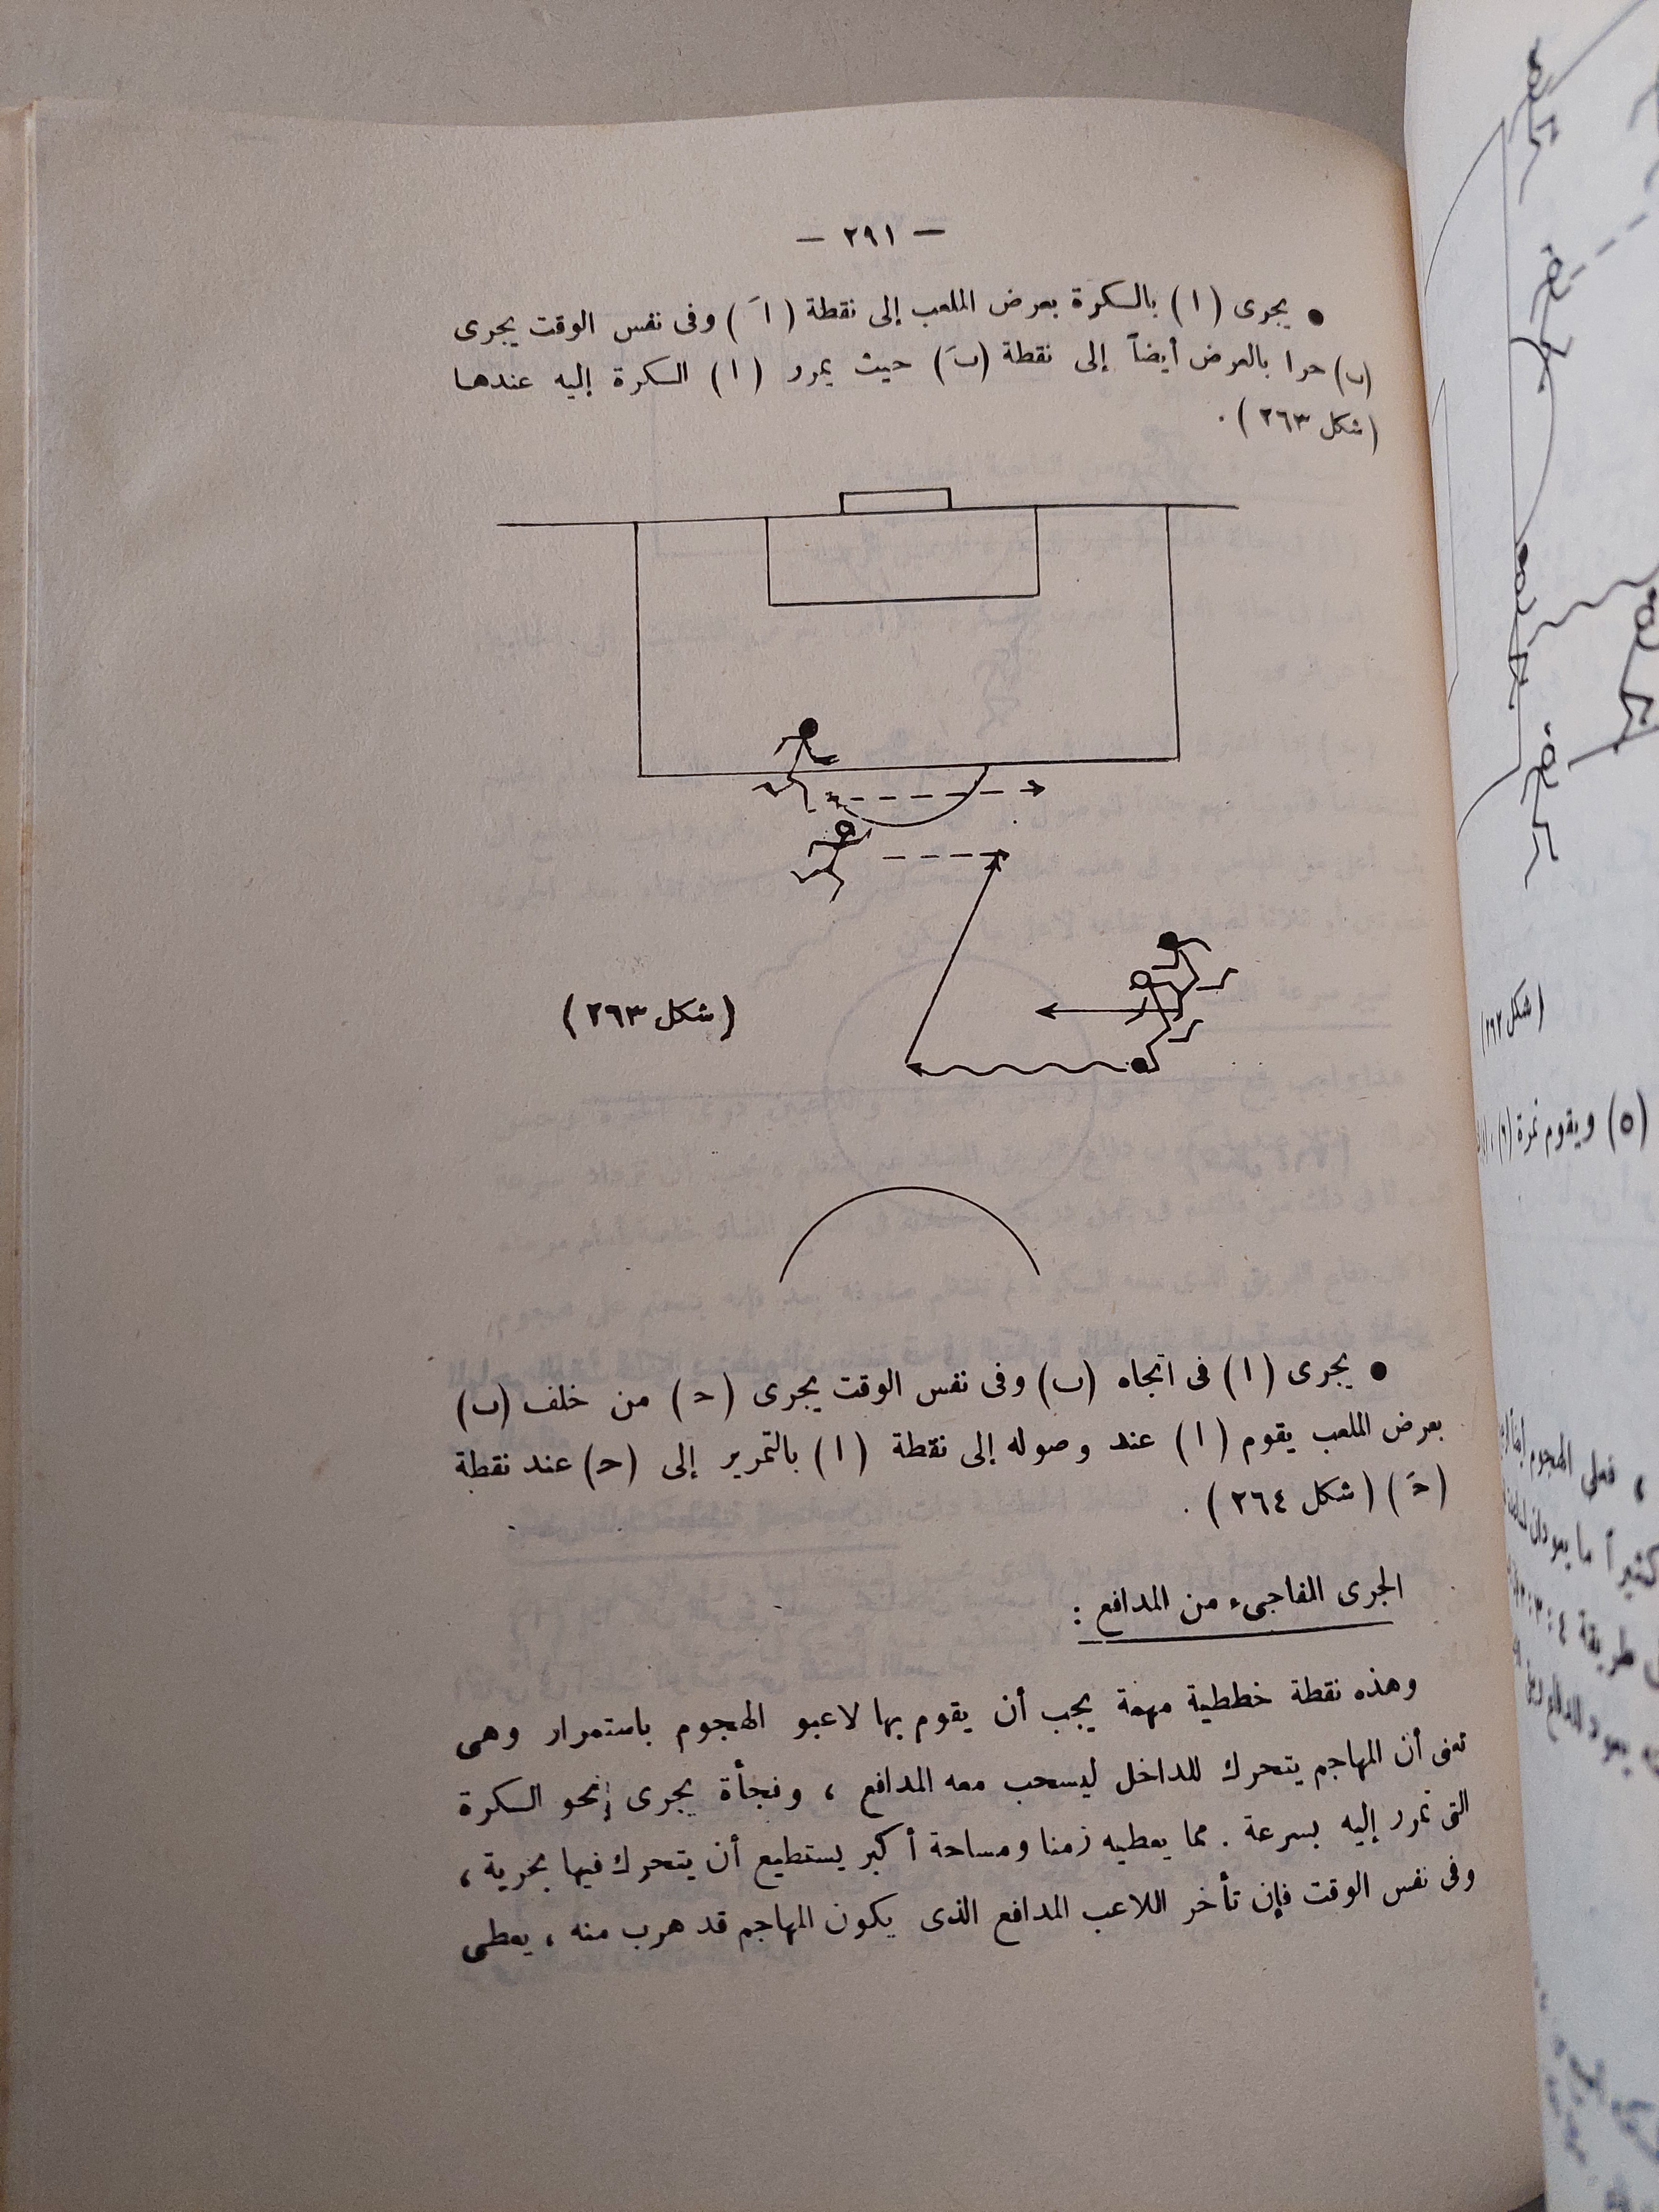 — ٢٩١ —
● يجرى (ا) بالكرة بعرض الملعب إلى نقطة (اَ) وفى نفس الوقت يجرى
(ب) حرا بالعرض أيضاً إلى نقطة (بَ) حيث يمرر (ا) الكرة إليه عندها
(شكل ٢٦٣) .
(شكل ٢٦٣)
● يجرى (ا) فى اتجاه (ب) وفى نفس الوقت يجرى (حـ) من خلف (ب)
بعرض الملعب يقوم (ا) عند وصوله إلى نقطة (ا) بالتمرير إلى (حـ) عند نقطة
(حـَ) (شكل ٢٦٤) .
الجرى المفاجىء من المدافع :
وهذه نقطة خططية مهمة يجب أن يقوم بها لاعبو الهجوم باستمرار وهى
تعنى أن المهاجم يتحرك للداخل ليسحب معه المدافع ، وفجأة يجرى نحو الكرة
التى تمرر إليه بسرعة . مما يعطيه زمنا ومساحة أكبر يستطيع أن يتحرك فيها بحرية ،
وفى نفس الوقت فإن تأخر اللاعب المدافع الذى يكون المهاجم قد هرب منه ، يعطى
(شكل ٢٦٢)
(٥) ويقوم نمرة (٦)
، فعلى الهجوم أيضاً
كثيراً ما يعودان
طريقة ٤ : ٣ : ٣
يعود للدفاع